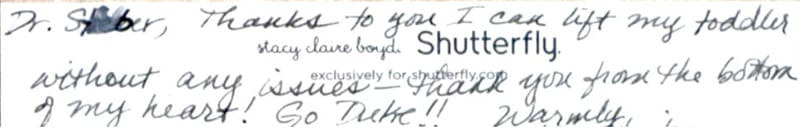 Dr. St ber, Thanks to you I can lift my toddler
stacy claire boyd. Shutterfly.
exclusively for shutterfly.com
without any issues — thank you from the bottom
of my heart! Go Duke!! Warmly,